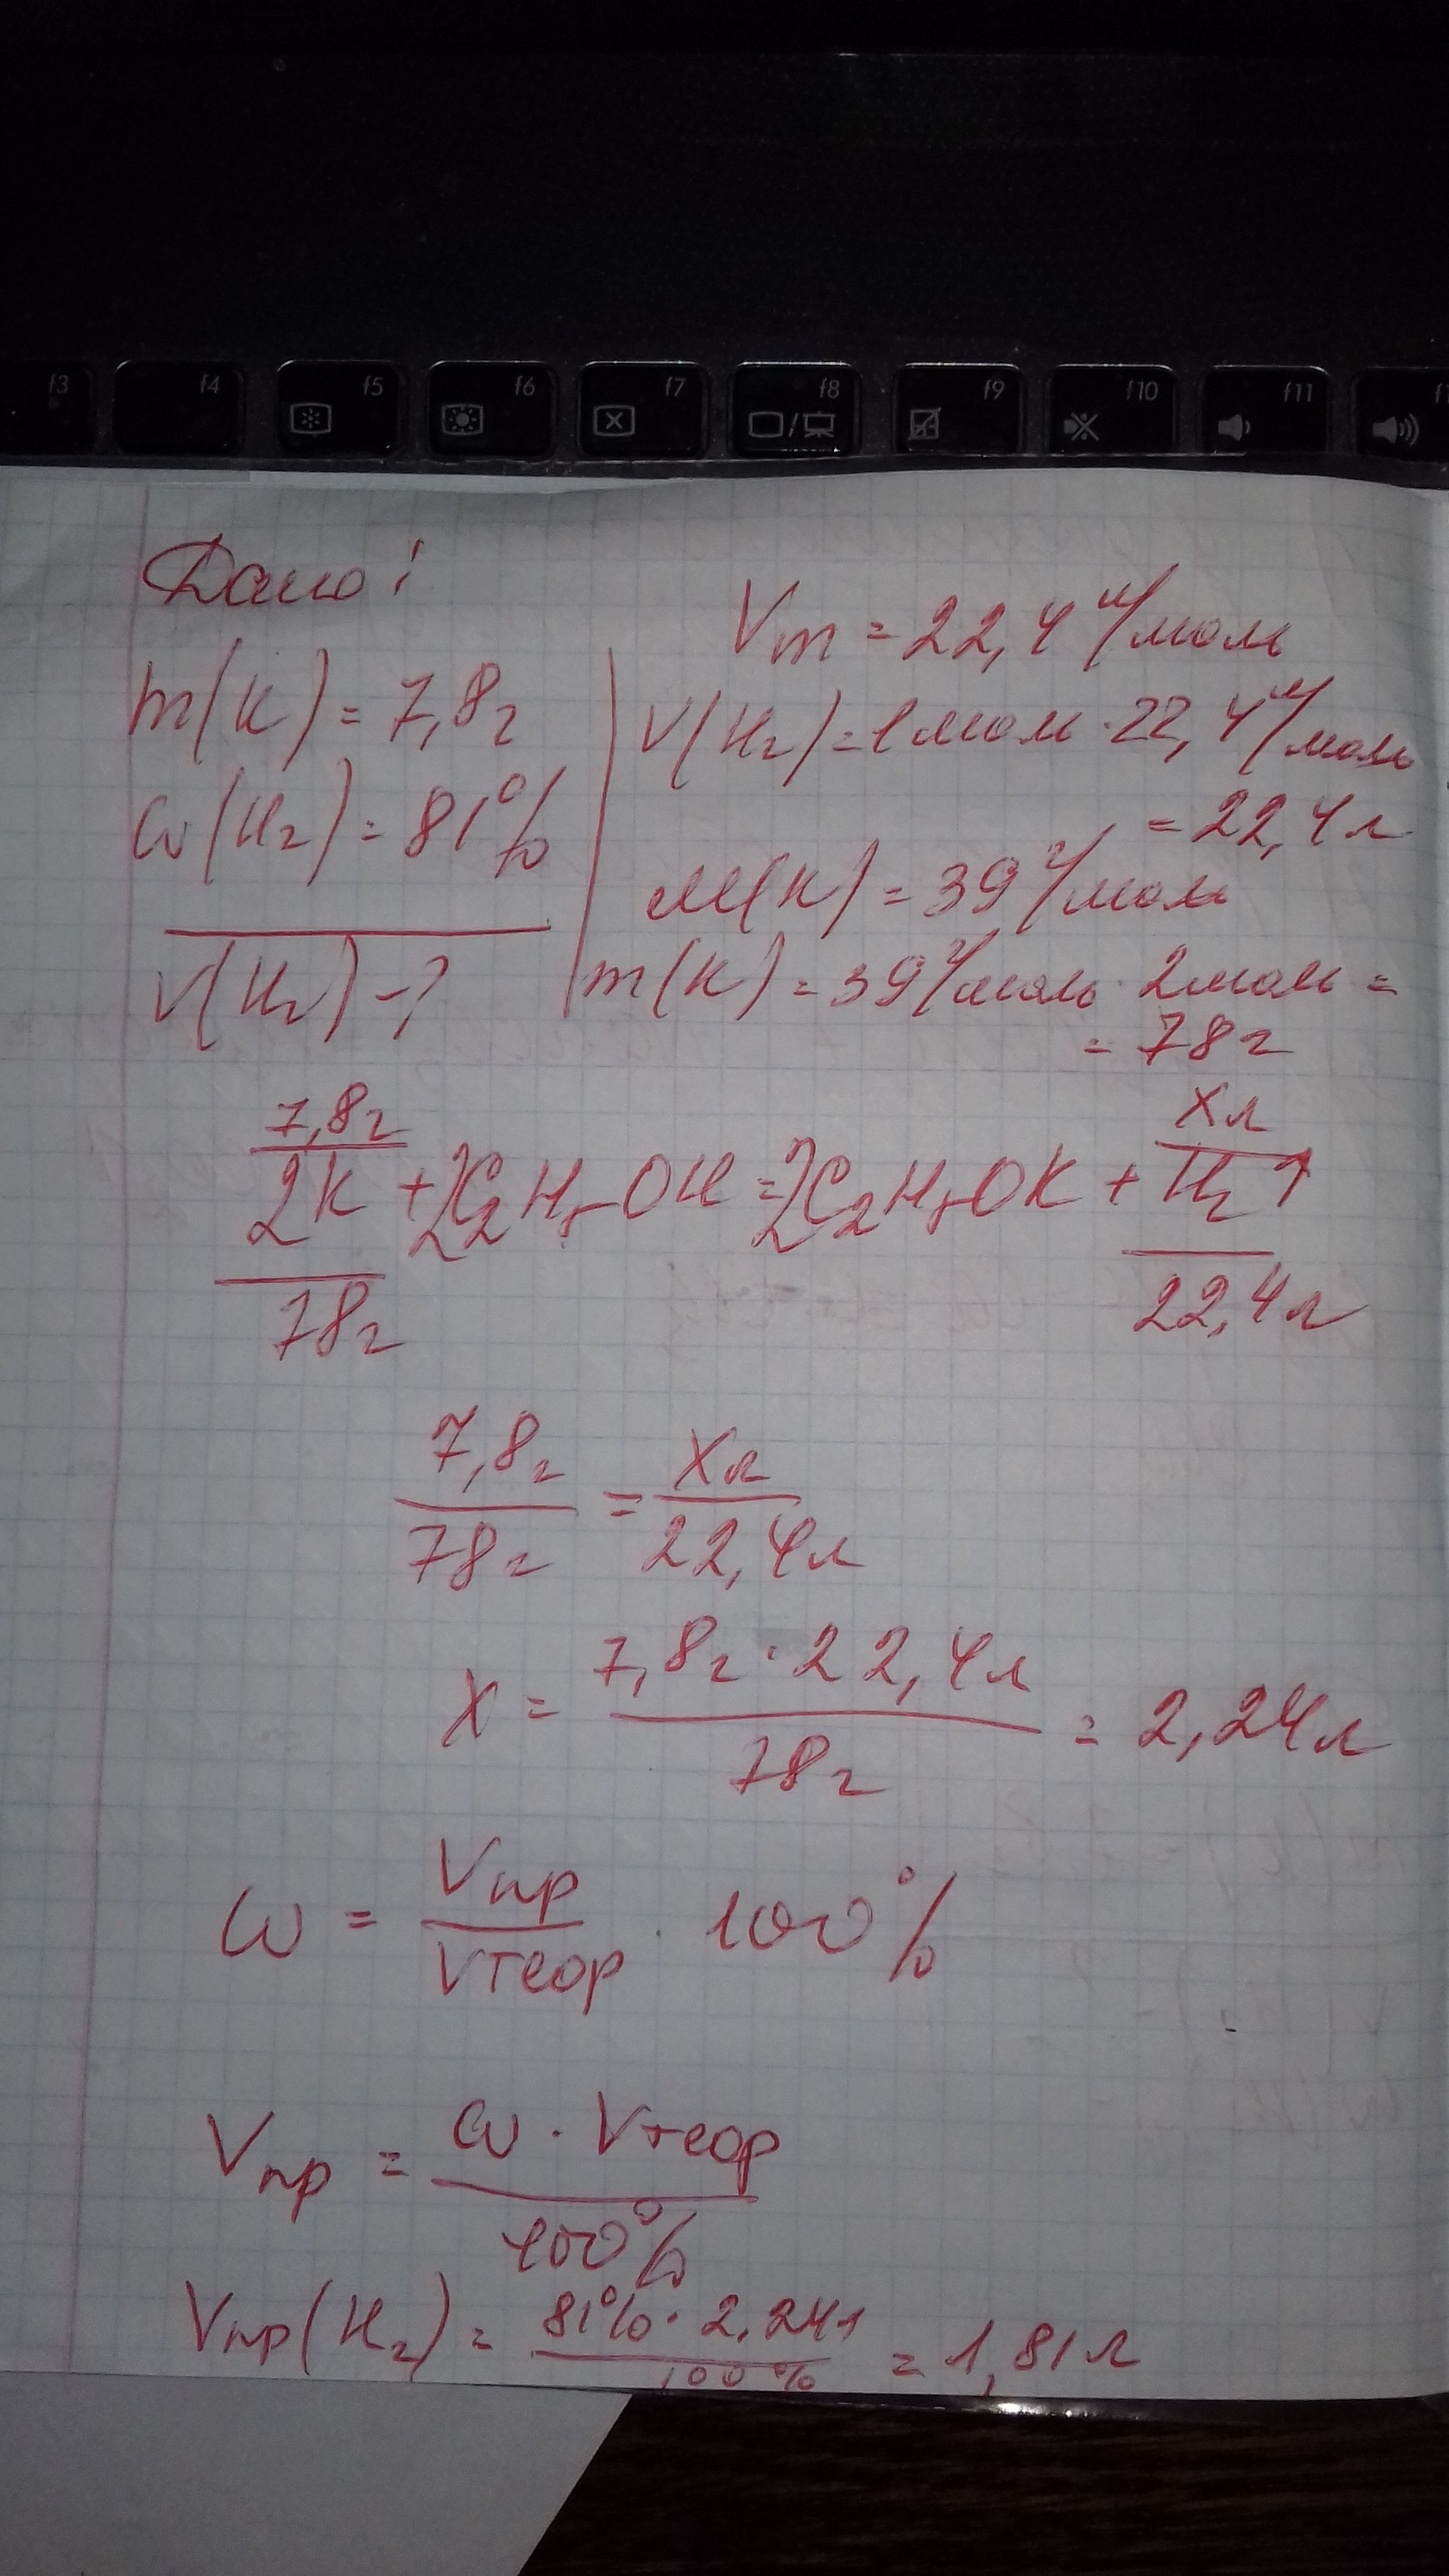 f3 f4 f5 f6 f7 f8 f9 f10 f11 f
Дано:
m(K) = 7,8г
ω(H₂) = 81%
V(H₂) - ?
Vm = 22,4 л/моль
V(H₂) = 1 моль · 22,4 л/моль
= 22,4 л
M(K) = 39 г/моль
m(K) = 39 г/моль · 2 моль =
= 78 г
7,8г Xл
2K + 2C₂H₅OH = 2C₂H₅OK + H₂↑
78г 22,4л
7,8г / 78г = Xл / 22,4л
X = 7,8г · 22,4л / 78г = 2,24л
ω = Vпр / Vтеор · 100%
Vпр = ω · Vтеор / 100%
Vпр(H₂) = 81% · 2,24л / 100% = 1,81л